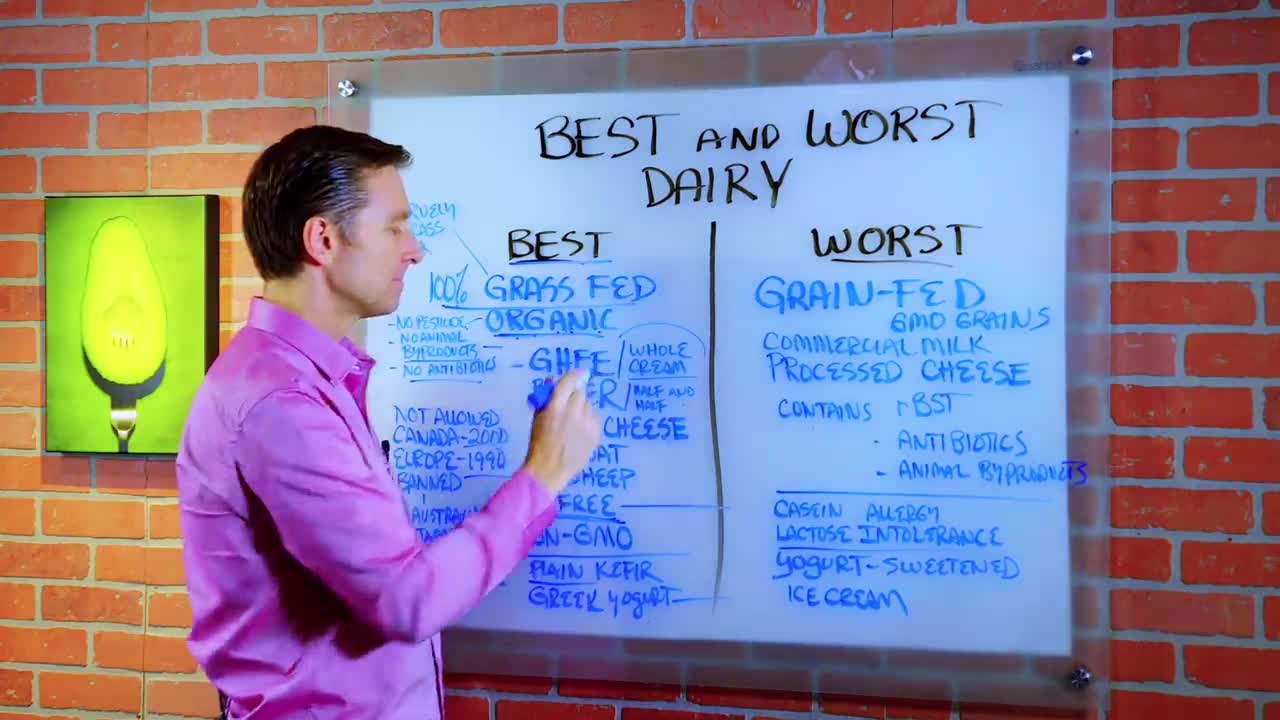 BEST AND WORST
DAIRY
BEST
100% GRASS FED
ORGANIC
- NO PESTICIDE
- NO ANIMAL
BYPRODUCTS
- NO ANTIBIOTICS
- GHEE / WHOLE
CREAM
HALF AND
HALF
CHEESE
NOT ALLOWED
CANADA-2000
EUROPE-1990
BANNED
FREE
PLAIN KEFIR
GREEK YOGURT
WORST
GRAIN-FED
GMO GRAINS
COMMERCIAL MILK
PROCESSED CHEESE
CONTAINS rBST
- ANTIBIOTICS
- ANIMAL BYPRODUCTS
CASEIN ALLERGY
LACTOSE INTOLERANCE
YOGURT-SWEETENED
ICE CREAM